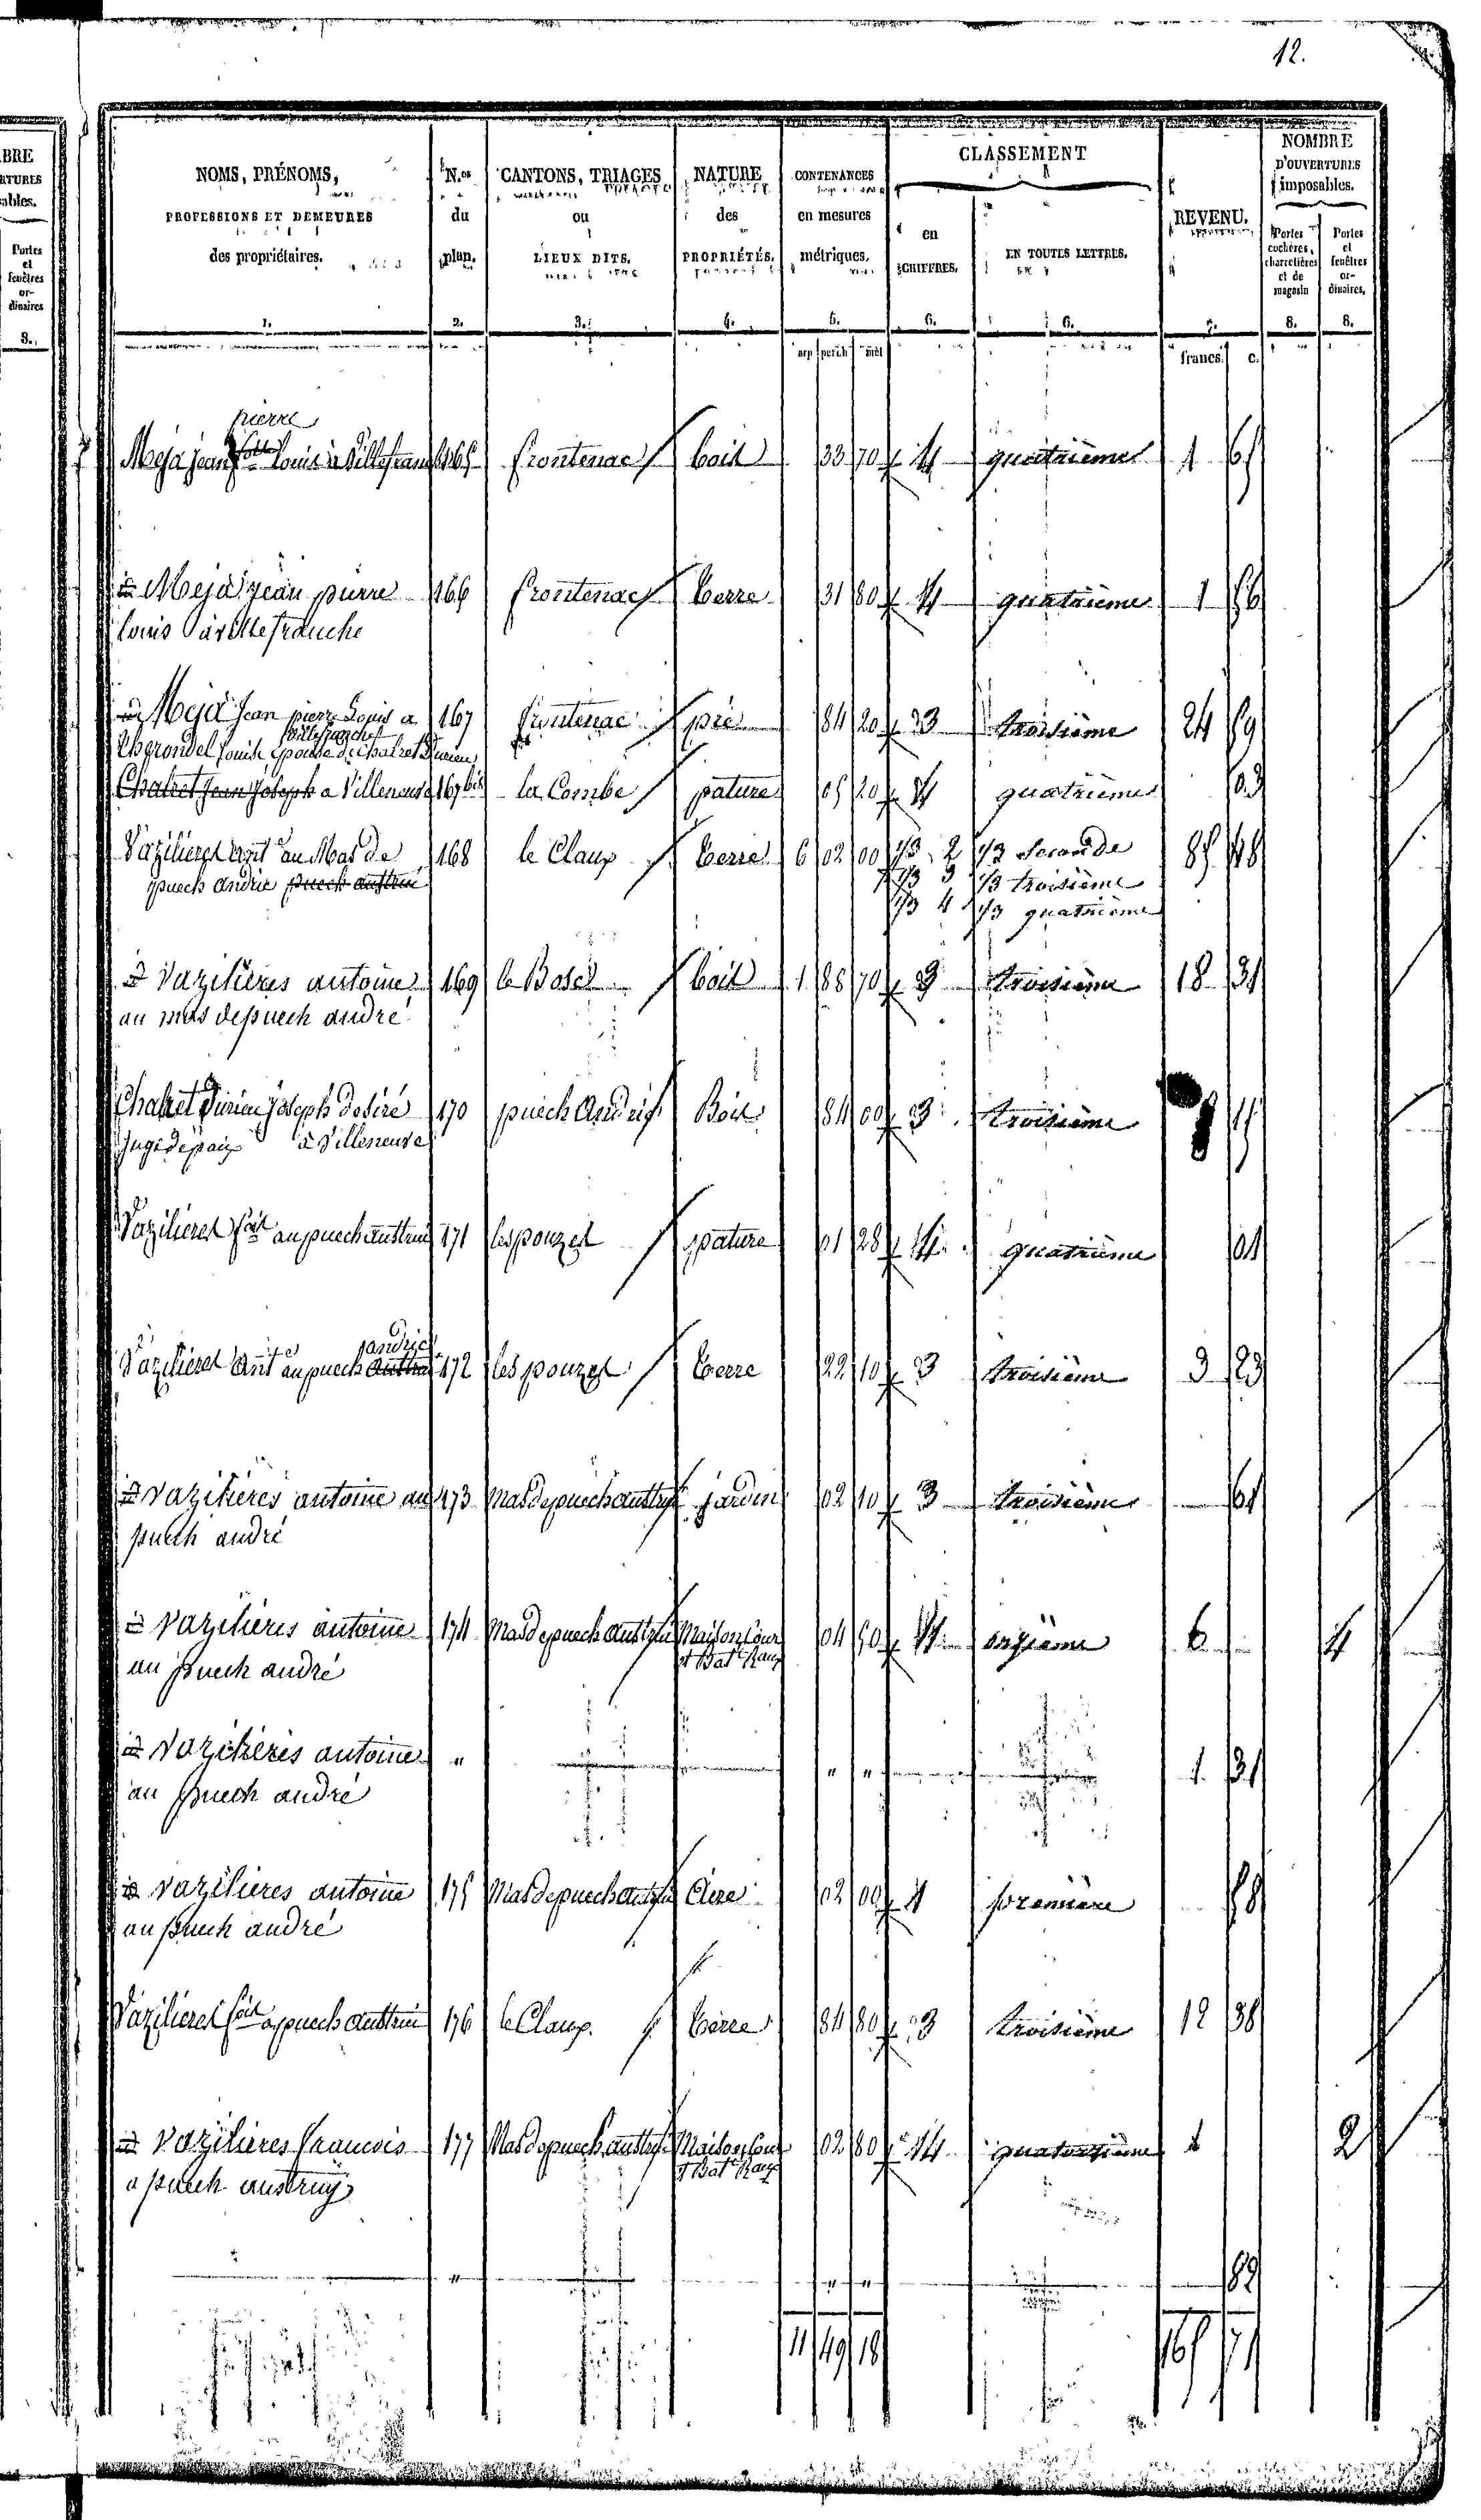 12.
BRE
RTURES
ables.
Portes
et
fenêtres
or-
dinaires
8.
NOMS, PRÉNOMS,
PROFESSIONS ET DEMEURES
des propriétaires.
1.
N.os
du
plan.
2.
CANTONS, TRIAGES
ou
LIEUX DITS.
3.
NATURE
des
PROPRIÉTÉS.
4.
CONTENANCES
en mesures
métriques.
5.
CLASSEMENT
en
CHIFFRES.
6.
EN TOUTES LETTRES.
6.
REVENU.
7.
NOMBRE
D'OUVERTURES
imposables.
Portes
cochères,
charretières
et de
magasin
8.
Portes
et
fenêtres
or-
dinaires.
8.
arp perch mèt francs. c.
pierre
Meja jean Louis à Villefranche 165 frontenac bois 33 70 4 quatrième 1 65
Meja jean pierre 166 frontenac terre 31 80 4 quatrième 1 56
louis à villefranche
Meja Jean pierre Louis a 167 frontenac pré 84 20 3 troisième 24 59
villefranche
Louise épouse de Chatret
Chatret Jean Joseph a Villeneuve 167 bis la Combe pature 05 20 4 quatrième 03
Vazilieres Ant.e au Mas de 168 le Claux terre 6 02 00 1/3 2 1/3 Seconde 85 48
puech andrie puech austrui 1/3 3 1/3 troisième
1/3 4 1/3 quatrième
vazilières antoine 169 le Bosc bois 1 88 70 3 troisième 18 31
au mas de puech andré
Chatret Joseph desiré 170 puech Andrié Bois 84 00 3 troisième
Juge de paix à Villeneuve
Vazilieres fois au puech austrui 171 les pouzes pature 01 28 4 quatrième 01
andrie
Vazilieres Ant.e au puech austrui 172 les pouzes terre 22 10 3 troisième 3 23
vazilières antoine au 173 Mas de puech austruy jardin 02 10 3 troisième 61
puech andré
vazilières antoine 174 Mas de puech austrui Maison Cour 04 50 11 onzième 6 4
au puech andré et Bat.t Raux
vazilières antoine " " " 1 31
au puech andré
vazilières antoine 175 Mas de puech austrui aire 02 00 1 première 58
au puech andré
Vazilieres fois a puech austrui 176 le Claux terre 84 80 3 troisième 12 38
vazilières francois 177 Mas de puech austruy Maison Cour 02 80 14 quatorzième 1 2
a puech austruy et Bat.t Raux
" " " 82
11 49 18 165 71